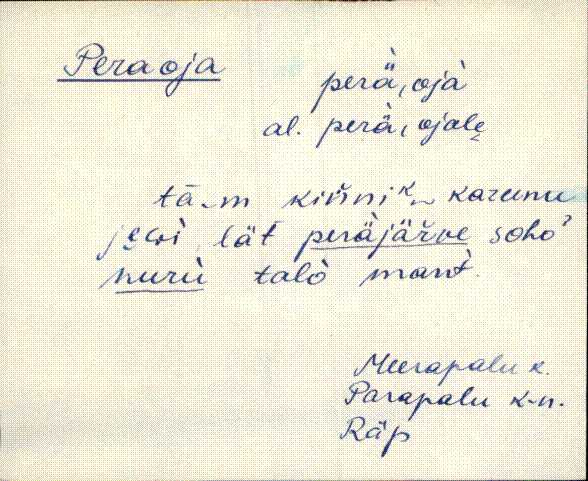 Peraoja
perä, ojà
al. perä, ojalę
tā‿m kińnik‿ karunu
lät peräjäŕve soho'
nurù talò mant.
Meerapalu k.
Parapalu k-n.
Räp